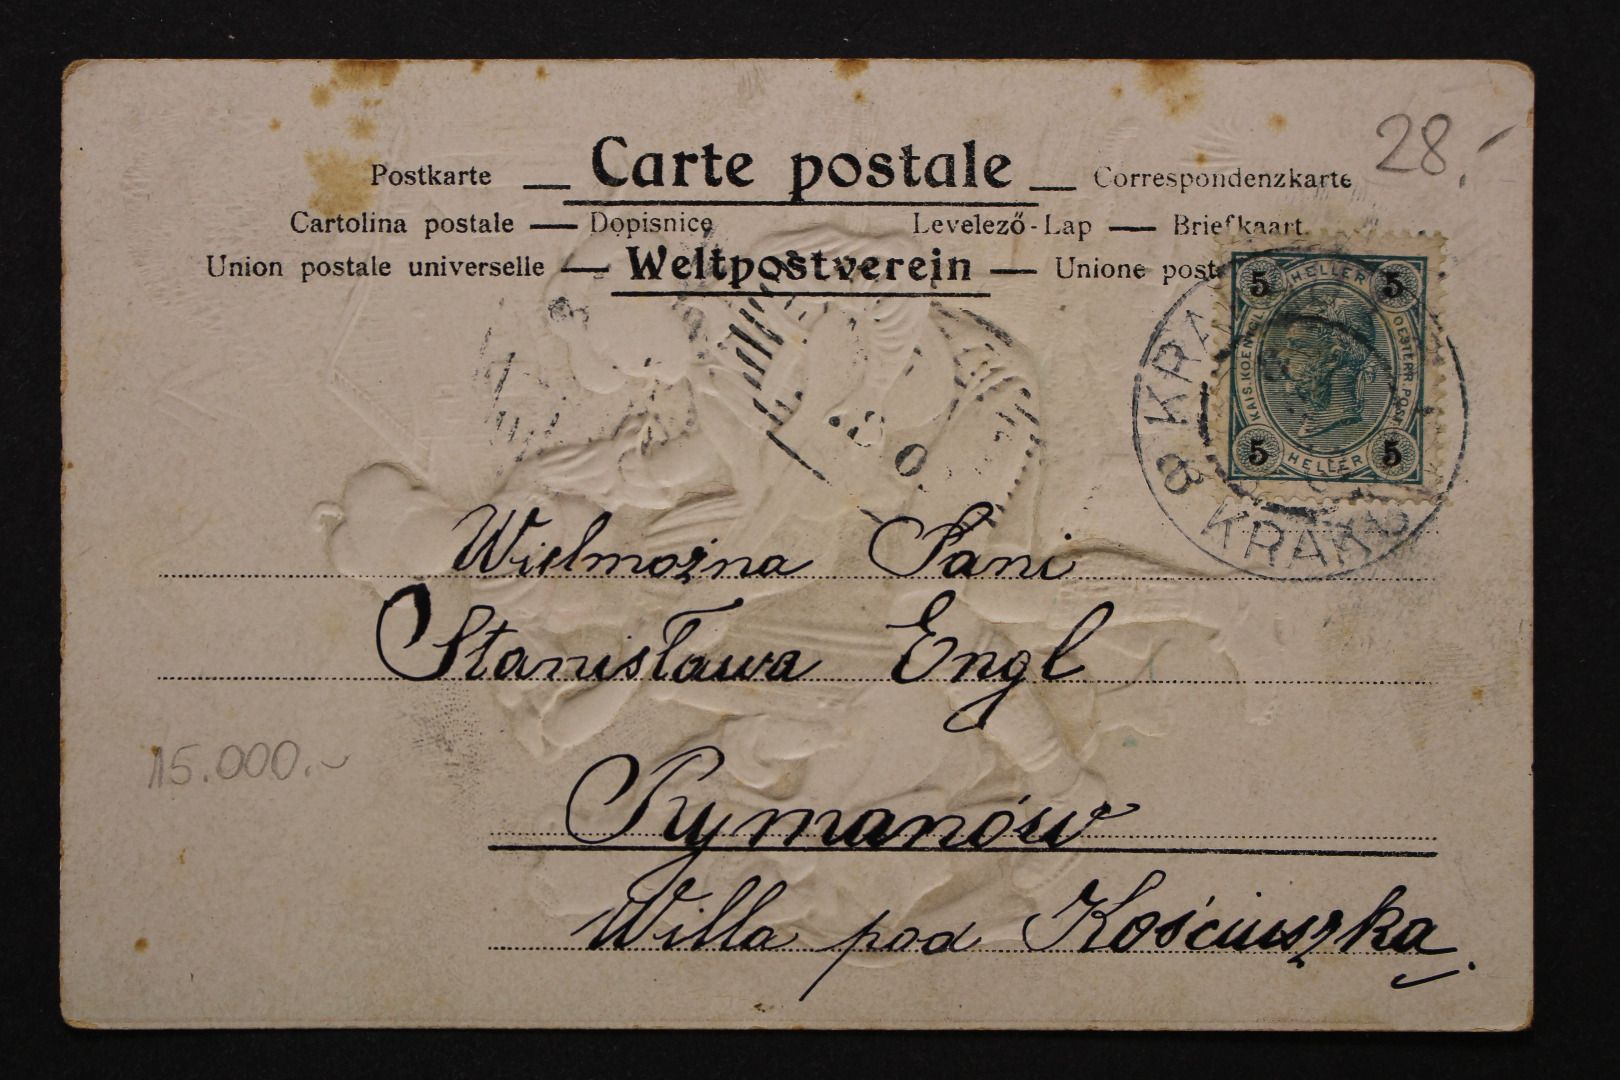 28.-
Postkarte — Carte postale — Correspondenzkarte
Cartolina postale — Dopisnice Levelező-Lap — Briefkaart
Union postale universelle — Weltpostverein — Unione post
5 HELLER 5
KAIS. KOENIGL. OESTERR. POST
5 HELLER 5
8 KRAK
KRAKA
Wielmożna Pani
Stanisława Engl
15.000.-
Rymanów
Willa pod Kościuszka.